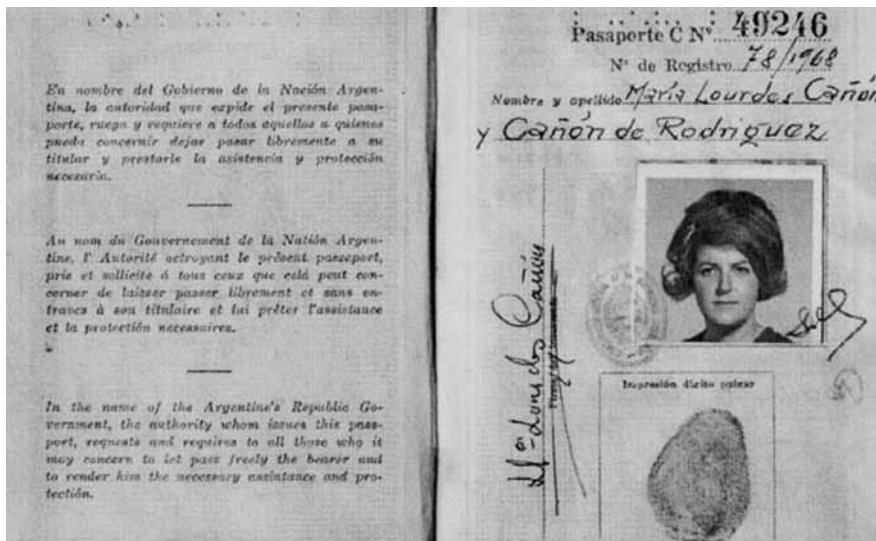 En nombre del Gobierno de la Nación Argen-
tina, la autoridad que expide el presente pasa-
porte, ruega y requiere a todos aquellos a quienes
pueda concernir dejar pasar libremente a su
titular y prestarle la asistencia y protección
necesaria.
Au nom du Gouvernement de la Natión Argen-
tine, l' Autorité octroyant le présent passeport,
prie et sollicite á tous ceux que celá peut con-
cerner de laisser passer librement et sans en-
traves à son titulaire et lui prêter l'assistance
et la protectión necessaires.
In the name of the Argentine's Republic Go-
vernment, the authority whom issues this pass-
port, requests and requires to all those who it
may concern to let pass freely the bearer and
to render him the necessary assistance and pro-
tectión.
Pasaporte C Nº 49246
Nº de Registro 78/1968
Nombre y apellido María Lourdes Cañón
y Cañón de Rodriguez
Mª Lourdes Cañón
Impresión dígito pulgar